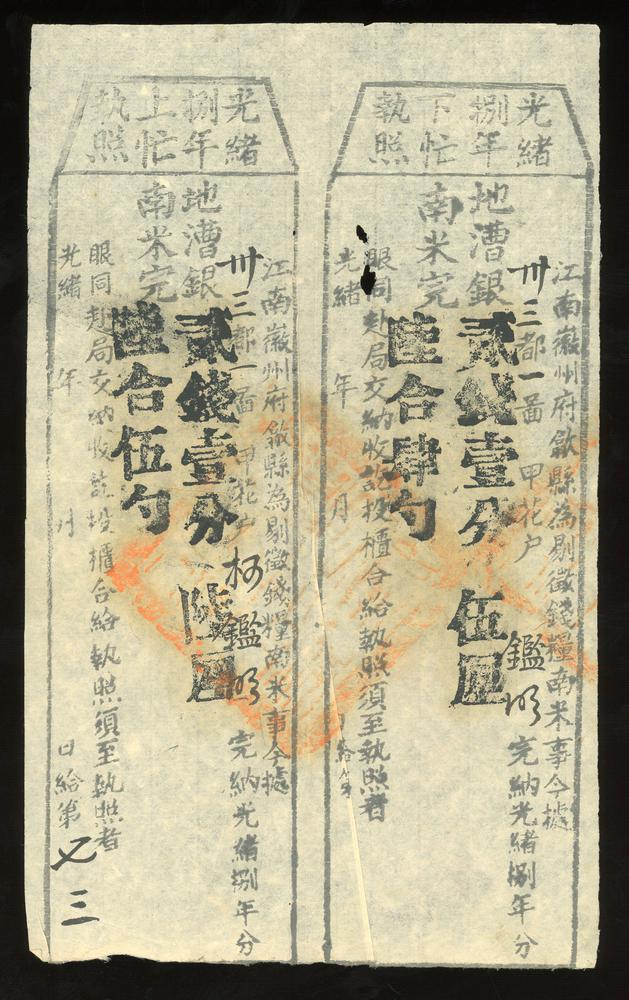 光緒
捌年
下忙
執照
江南徽州府歙縣為剔徵錢糧南米事今據
卅三都一啚 甲花户 鑑明 完納光緒捌年分
地漕銀 貳錢壹分 伍厘
南米完 陸合肆勺
眼同赴局交納收訖投櫃合給執照須至執照者
光緒 年 月 日給第
光緒
捌年
上忙
執照
江南徽州府歙縣為剔徵錢糧南米事今據
卅三都一啚 甲花户 柯鑑明 完納光緒捌年分
地漕銀 貳錢壹分 陸厘
南米完 陸合伍勺
眼同赴局交納收訖投櫃合給執照須至執照者
光緒 年 月 日給第